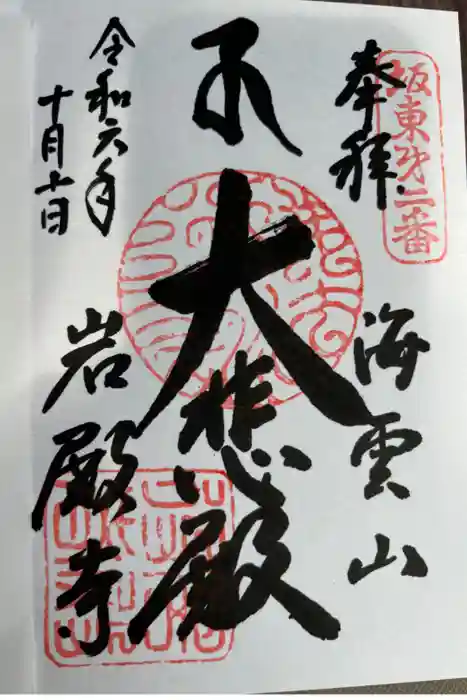 坂東第二番
奉拝
海雲山
大悲殿
令和六年
十月十日
岩殿寺